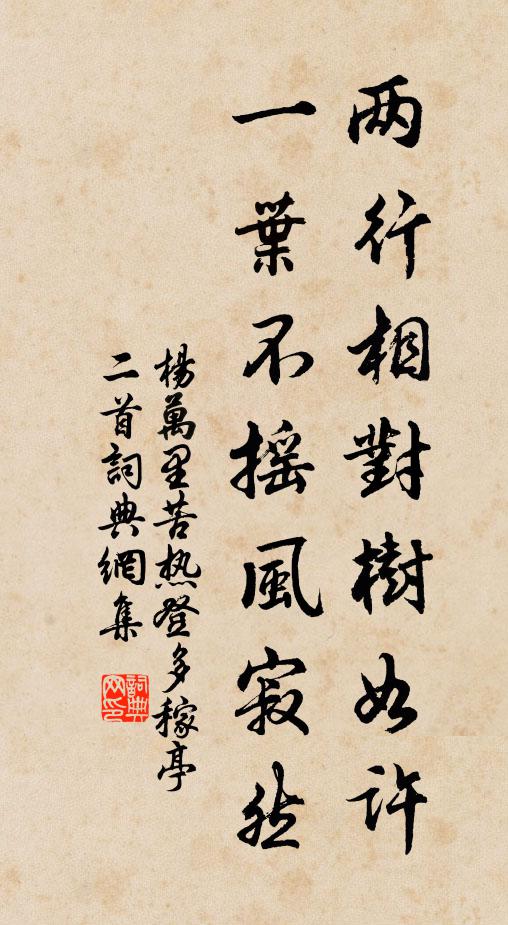 两行相對樹如許
一葉不摇風寂然
楊萬里苦热登多稼亭
二首詞典網集
詞典網印